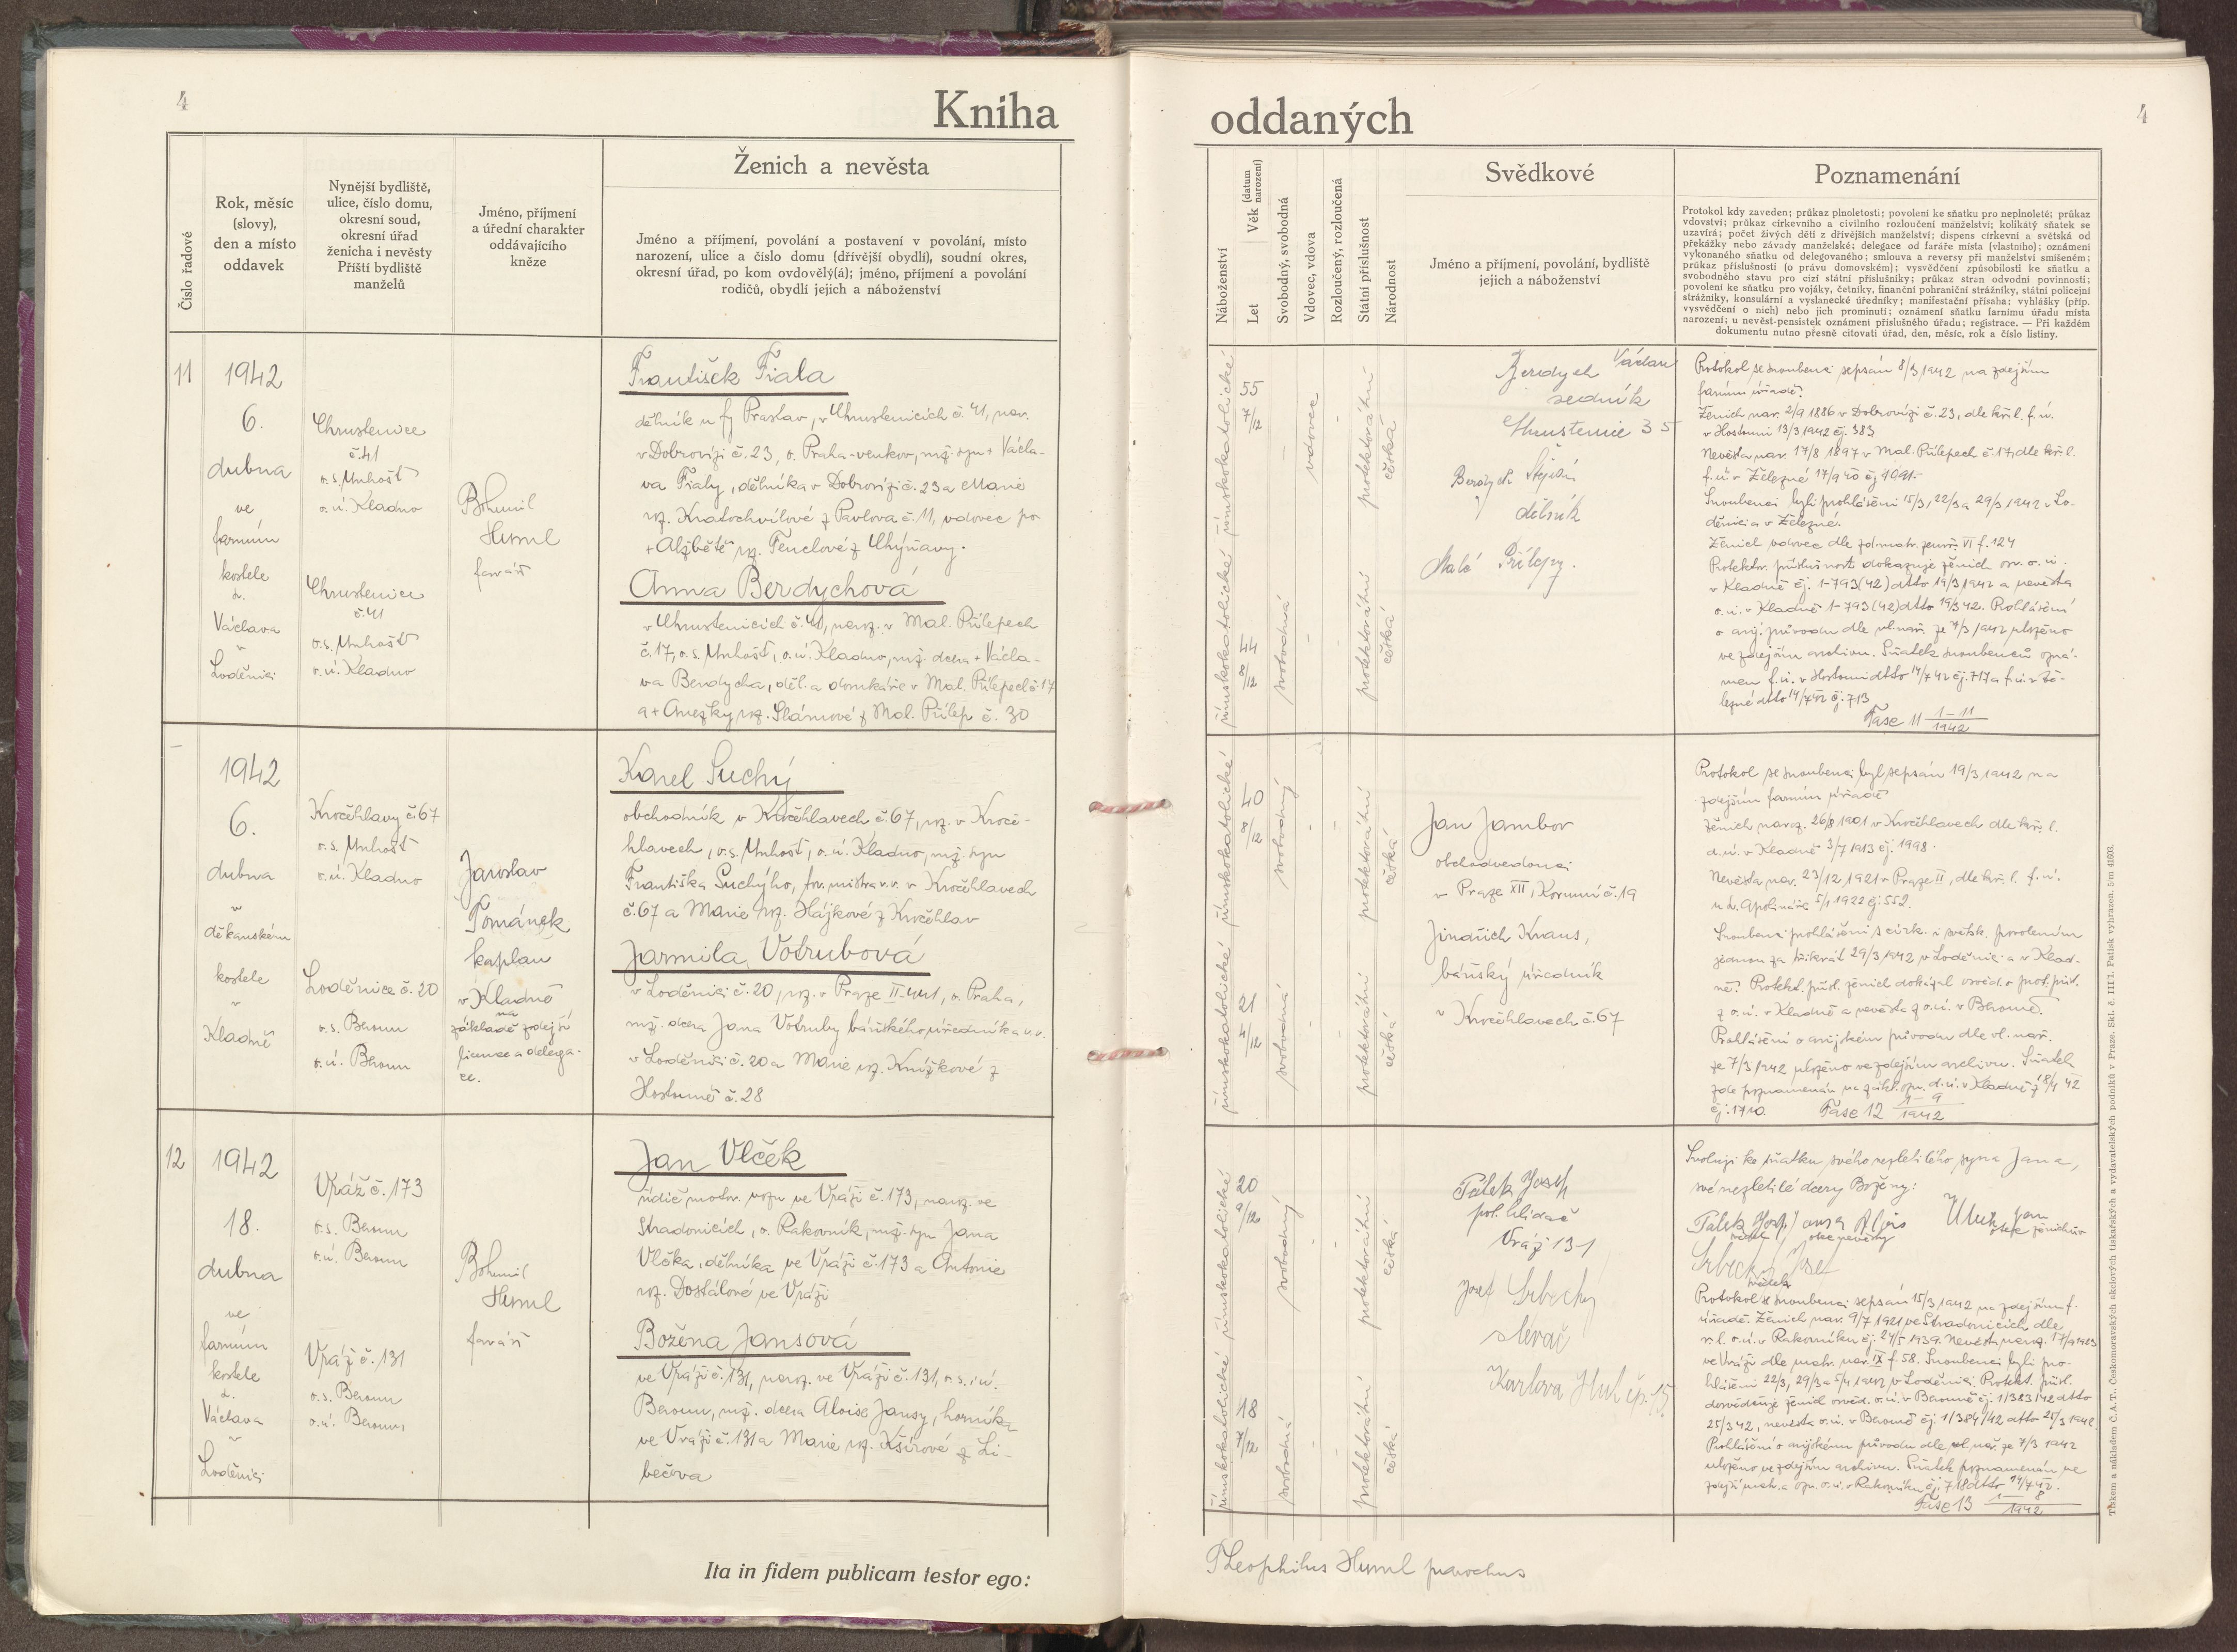 4
Kniha
Číslo řadové
Rok, měsíc
(slovy),
den a místo
oddavek
Nynější bydliště,
ulice, číslo domu,
okresní soud,
okresní úřad
ženicha i nevěsty
Příští bydliště
manželů
Jméno, příjmení
a úřední charakter
oddávajícího
kněze
Ženich a nevěsta
Jméno a příjmení, povolání a postavení v povolání, místo
narození, ulice a číslo domu (dřívější obydlí), soudní okres,
okresní úřad, po kom ovdověly(á); jméno, příjmení a povolání
rodičů, obydlí jejich a náboženství
11
1942
6.
dubna
ve
farním
kostele
sv.
Václava
v
Loděnici
Chrustenice
č. 41
o. s. Unhošť
o. ú. Kladno
Chrustenice
č. 41
o. s. Unhošť
o. ú. Kladno
Bohumil
Huml
farář
František Fiala
dělník u fy Praslav, v Chrustenicích č. 41, nar.
v Dobrovízi č. 23, o. Praha-venkov, mž. syn + Václa-
va Fialy, dělníka v Dobrovízi č. 23 a Marie
roz. Kratochvílové z Pavlova č. 11, vdovec po
+ Alžbětě roz. Fenclové z Chýňavy.
Anna Berdychová
v Chrustenicích č. 41, naroz. v Mal. Přílepech
č. 17, o. s. Unhošť, o. ú. Kladno, mž. dcera + Václa-
va Berdycha, děl. a domkáře v Mal. Přílepech č. 17
a + Anežky roz. Slámové z Mal. Přílep č. 30
1942
6.
dubna
v
děkanském
kostele
v
Kladně
Kročehlavy č. 67
o. s. Unhošť
o. ú. Kladno
Loděnice č. 20
o. s. Beroun
o. ú. Beroun
Jaroslav
Tománek
kaplan
v Kladně
na
základě zdejší
licence a delega-
ce.
Karel Suchý
obchodník v Kročehlavech č. 67, roz. v Kroče-
hlavech, o. s. Unhošť, o. ú. Kladno, mž. syn
Františka Suchýho, tov. mistra v. v. v Kročehlavech
č. 67 a Marie roz. Hájkové z Kročehlav
Jarmila Votrubová
v Loděnici č. 20, roz. v Praze II-441, o. Praha,
mž. dcera Jana Votruby báňského úředníka v. v.
v Loděnici č. 20 a Marie roz. Knížkové z
Hostomě č. 28
12
1942
18.
dubna
ve
farním
kostele
sv.
Václava
v
Loděnici
Vráž č. 173
o. s. Beroun
o. ú. Beroun
Vráž č. 131
o. s. Beroun
o. ú. Beroun,
Bohumil
Huml
farář
Jan Vlček
řidič motor. vozu ve Vráži č. 173, naroz. ve
Stradonicích, o. Rakovník, mž. syn Jana
Vlčka, dělníka ve Vráži č. 173 a Antonie
roz. Dostálové ve Vráži
Božena Jansová
ve Vráži č. 131, naroz. ve Vráži č. 131, o. s. i ú.
Beroun, mž. dcera Aloise Jansy, horníka
ve Vráži č. 131 a Marie roz. Kšírové z Li-
bečova
Ita in fidem publicam testor ego:
4
oddaných
Náboženství
Let
Věk (datum narození)
Svobodný, svobodná
Vdovec, vdova
Rozloučený, rozloučená
Státní příslušnost
Národnost
Svědkové
Jméno a příjmení, povolání, bydliště
jejich a náboženství
Poznamenání
Protokol kdy zaveden; průkaz plnoletosti; povolení ke sňatku pro neplnoleté; průkaz
vdovství; průkaz církevního a civilního rozloučení manželství; kolikátý sňatek se
uzavírá; počet živých dětí z dřívějších manželství; dispens církevní a světská od
překážky nebo závady manželské; delegace od faráře místa (vlastního); oznámení
vykonaného sňatku od delegovaného; smlouva a reversy při manželství smíšeném;
průkaz příslušnosti (o právu domovském); vysvědčení způsobilosti ke sňatku a
svobodného stavu pro cizí státní příslušníky; průkaz stran odvodní povinnosti;
povolení ke sňatku pro vojáky, četníky, finanční pohraniční strážníky, státní policejní
strážníky, konsulární a vyslanecké úředníky; manifestační přísaha; vyhlášky (příp.
vysvědčení o nich) nebo jich prominutí; oznámení sňatku farnímu úřadu místa
narození; u nevěst-pensistek oznámení příslušného úřadu; registrace. — Při každém
dokumentu nutno přesně citovati úřad, den, měsíc, rok a číslo listiny.
římskokatolické
55
7/12
–
vdovec
–
protektorátní
česká
římskokatolické
44
8/12
svobodná
–
–
protektorátní
česká
Berdych Václav
Chrustenice 35
Berdych
dělník
Malé Přílepy.
Protokol se snoubenci sepsán 8/3 1942 na zdejším
farním úřadě.
Ženich nar. 2/9 1886 v Dobrovízi č. 23, dle kř. l. f. ú.
v Hostouni 13/3 1942 čj. 383
Nevěsta nar. 17/8 1897 v Mal. Přílepech č. 17, dle kř. l.
f. ú. v Železné 17/9 40 čj.
Snoubenci byli prohlášeni 15/3, 22/3 a 29/3 1942 v Lo-
děnici a v Železné.
Ženich vdovec dle zd. matr. zemř. VI f. 124
Protekt. příslušnost dokazuje ženich osv. o. ú.
v Kladně čj. 1-793(42) dtto 19/3 1942 a nevěsta
o. ú. v Kladně 1-793(42) dtto 19/3 42. Prohlášení
o arij. původu dle vl. nař. ze 7/3 1942 uloženo
ve zdejším archivu. Sňatek snoubenců ozná-
men f. ú. v Hostouni dtto 14/4 42 čj. 717 a f. ú. v Že-
lezné dtto 14/4 42 čj. 713
Fase 11 1-11/1942
římskokatolické
40
8/12
svobodný
–
–
protektorátní
česká
římskokatolické
21
svobodná
–
–
protektorátní
česká
Jan Jambor
obchodvedoucí
v Praze XII, Korunní č. 19
Jindřich Kraus,
báňský úředník
v Kročehlavech č. 67
Protokol se snoubenci byl sepsán 19/3 1942 na
zdejším farním úřadě
Ženich naroz. 26/8 1901 v Kročehlavech dle kř. l.
d. ú. v Kladně 3/7 1913 čj. 1998.
Nevěsta nar. 23/12 1921 v Praze II, dle kř. l. f. ú.
u sv. Apolináře 5/1 1922 čj. 552.
Snoubenci prohlášeni s círk. i světsk. povolením
jednou za třikrát 29/3 1942 v Loděnici a v Klad-
ně. Protekt. přísl. ženich dokázal osvěd. o prot. přísl.
z o. ú. v Kladně a nevěsta z o. ú. v Berouně.
Prohlášení o arijském původu dle vl. nař.
ze 7/3 1942 uloženo ve zdejším archivu. Sňatek
zde poznamenán na zákl. ozn. d. ú. v Kladně z 8/4 42
čj. 1710. Fase 12 1-9/1942
římskokatolické
20
9/12
svobodný
–
–
protektorátní
česká
římskokatolické
18
7/12
svobodná
–
–
protektorátní
česká
Pátek Josef
pol. hlídač
Vráž 131
Josef Srbecký
slévač
Karlova Huť čp. 15
Svoluji ke sňatku svého nezletilého syna Jana,
své nezletilé dcery Boženy:
Pátek Josef Jansa Alois Vlček Jan
svědek otec nevěsty otec ženichův
Srbecký Josef
svědek
Protokol se snoubenci sepsán 15/3 1942 na zdejším f.
úřadě. Ženich nar. 9/7 1921 ve Stradonicích dle
r. l. o. ú. v Rakovníku čj. 24/5 1939. Nevěsta naroz. 17/9 1923
ve Vráži dle matr. nar. IX f. 58. Snoubenci byli pro-
hlášeni 22/3, 29/3 a 5/4 1942 v Loděnici. Protekt. přísl.
dosvědčuje ženich osvěd. o. ú. v Berouně čj. 1/383/42 dtto
25/3 42, nevěsta o. ú. v Berouně čj. 1/384/42 dtto 25/3 1942
Prohlášení o arijském původu dle vl. nař. ze 7/3 1942
uloženo ve zdejším archivu. Sňatek poznamenán ve
zdejší matr. a ozn. o. ú. v Rakovníku čj. 718 dtto 14/4 42.
Fase 13 1-8/1942
Theophilus Huml parochus
Tiskem a nákladem Č. A. T., Českomoravských akciových tiskařských a vydavatelských podniků v Praze. Skl. č. III/1. Patisk vyhrazen.